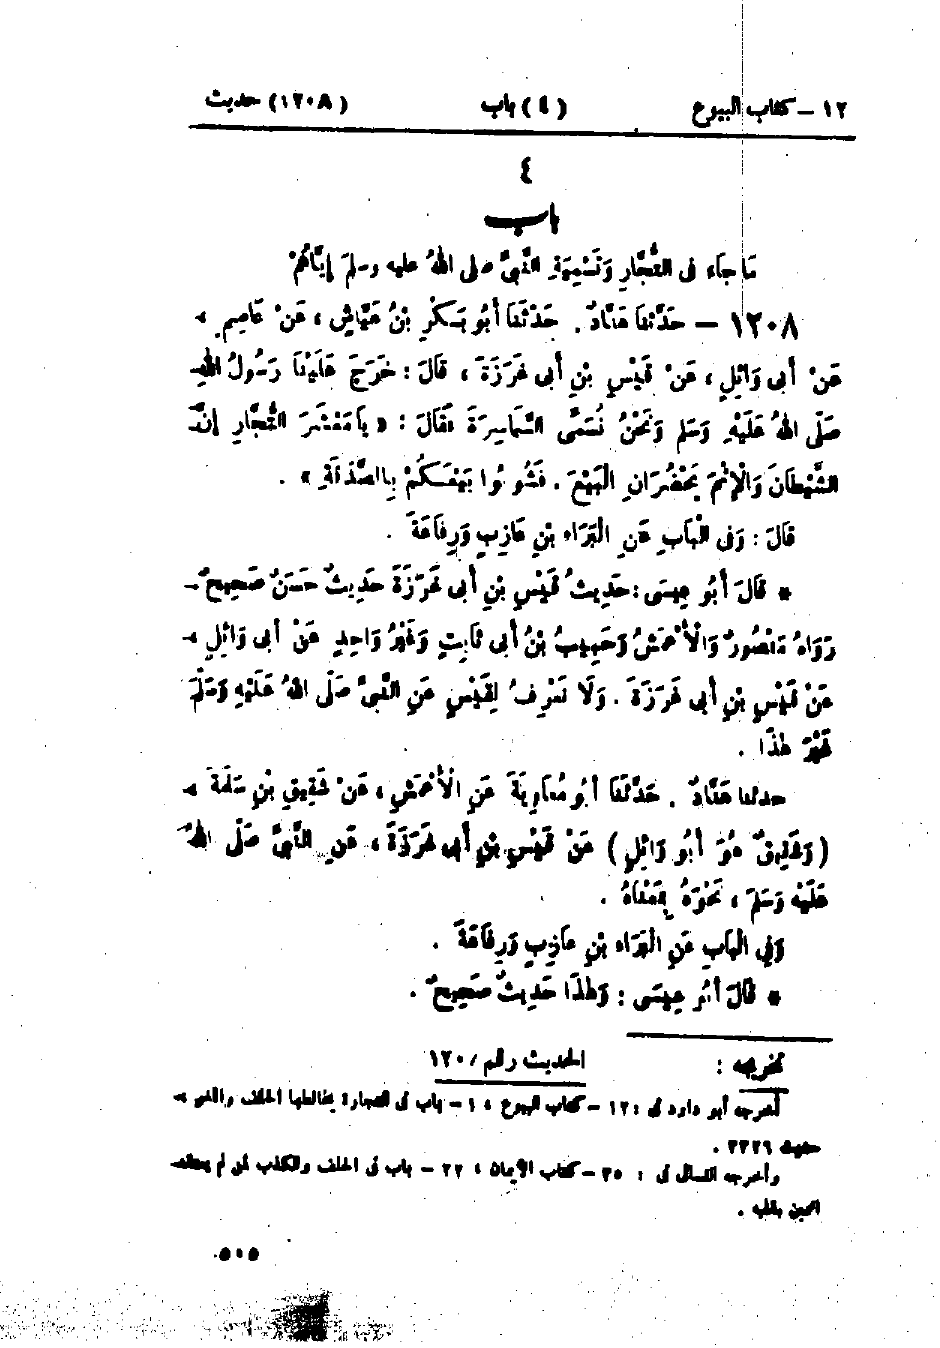 ١٢ – كتاب البيوع (٤) باب (١٢٠٨) حديث
٤
باب
مَا جَاءَ فى التُّجَّارِ وَتَسْمِيَةِ النَّبِىِّ صلى اللهُ عليه وسلمَ إِيَّاهُمْ
١٢٠٨ – حَدَّثنَا هَنَّادٌ . حَدَّثَنَا أَبُو بَكْرِ بْنُ عَيَّاشٍ ، عَنْ عَاصِمٍ ،
عَنْ أَبِى وَائِلٍ ، عَنْ قَيْسِ بْنِ أَبِى غَرَزَةَ ، قَالَ : خَرَجَ عَلَيْنَا رَسُولُ اللهِ
صَلَّى اللهُ عَلَيْهِ وَسَلم وَنَحْنُ نُسَمَّى السَّمَاسِرَةَ فَقَالَ : « يَا مَعْشَرَ التُّجَّارِ إِنَّ
الشَّيْطَانَ وَالْإِثْمَ يَحْضُرَانِ الْبَيْعَ . فَشُوبُوا بَيْعَكُمْ بِالصَّدَقَةِ » .
قَالَ : وَفى الْبَابِ عَنِ الْبَرَاءِ بْنِ عَازِبٍ وَرِفَاعَةَ .
* قَالَ أَبُو عِيسَى : حَدِيثُ قَيْسِ بْنِ أَبِى غَرَزَةَ حَدِيثٌ حَسَنٌ صَحِيحٌ
رَوَاهُ مَنْصُورٌ وَالْأَعْمَشُ وَحَبِيبُ بْنُ أَبِى ثَابِتٍ وَغَيْرُ وَاحِدٍ عَنْ أَبِى وَائِلٍ ،
عَنْ قَيْسِ بْنِ أَبِى غَرَزَةَ . وَلَا نَعْرِفُ لِقَيْسٍ عَنِ النَّبِىِّ صَلَّى اللهُ عَلَيْهِ وَسَلَّمَ
غَيْرَ هٰذَا .
حدثنا هَنَّادٌ . حَدَّثَنَا أَبُو مُعَاوِيَةَ عَنِ الْأَعْمَشِ ، عَنْ شَقِيقِ بْنِ سَلَمَةَ ،
( وَشَقِيقٌ هُوَ أَبُو وَائِلٍ ) عَنْ قَيْسِ بْنِ أَبِى غَرَزَةَ ، عَنِ النَّبِىِّ صَلَّى اللهُ
عَلَيْهِ وَسَلمَ ، نَحْوَهُ بِمَعْنَاهُ .
وَفِى الْبَابِ عَنِ الْبَرَاءِ بْنِ عَازِبٍ وَرِفَاعَةَ .
* قَالَ أَبُو عِيسَى : وَهٰذَا حَدِيثٌ صَحِيحٌ .
تخريجه : الحديث رقم ١٢٠٨
أخرجه أبو داود فى : ٢٢ – كتاب البيوع ، ١ – باب فى التجارة يخالطها الحلف واللغو ،
حديث ٣٣٢٦ .
وأخرجه النسائى فى : ٣٥ – كتاب الأيمان ، ٢٢ – باب فى الحلف والكذب لمن لم يعتقد
اليمين بقلبه .
٥٠٥